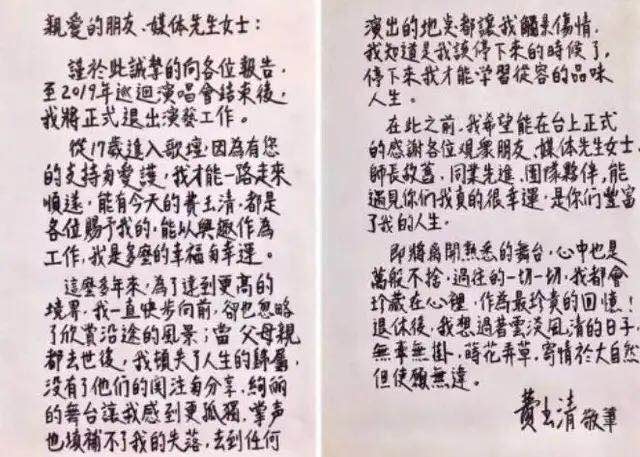 親愛的朋友、媒体先生女士：
謹於此誠摯的向各位報告，
至2019年巡迴演唱會結束後，
我將正式退出演藝工作。
從17歲進入歌壇，因為有您
的支持与愛護，我才能一路走來
順遂，能有今天的費玉清，都是
各位賜予我的，能以興趣作為
工作，我是多麼的幸福与幸運。
這麼多年來，為了達到更高的
境界，我一直快步向前，卻也忽略
了欣賞沿途的風景；當父母親
都去世後，我頓失了人生的歸屬，
沒有了他們的関注与分享，絢麗
的舞台讓我感到更孤獨，掌声
也填補不了我的失落，去到任何
演出的地点都讓我觸景傷情，
我知道是我該停下來的時候了，
停下來我才能学習從容的品味
人生。
在此之前，我希望能在台上正式
的感謝各位观衆朋友、媒体先生女士、
師長故舊，同業先進，團隊夥伴，能
遇見你們我真的很幸運，是你們豐富
了我的人生。
即將離開熟悉的舞台，心中也是
萬般不捨，過往的一切一切，我都會
珍藏在心裡，作為最珍貴的回憶！
退休後，我想過著雲淡風清的日子，
無牽無掛，蒔花弄草，寄情於大自然
但使願無違。
費玉清 敬筆